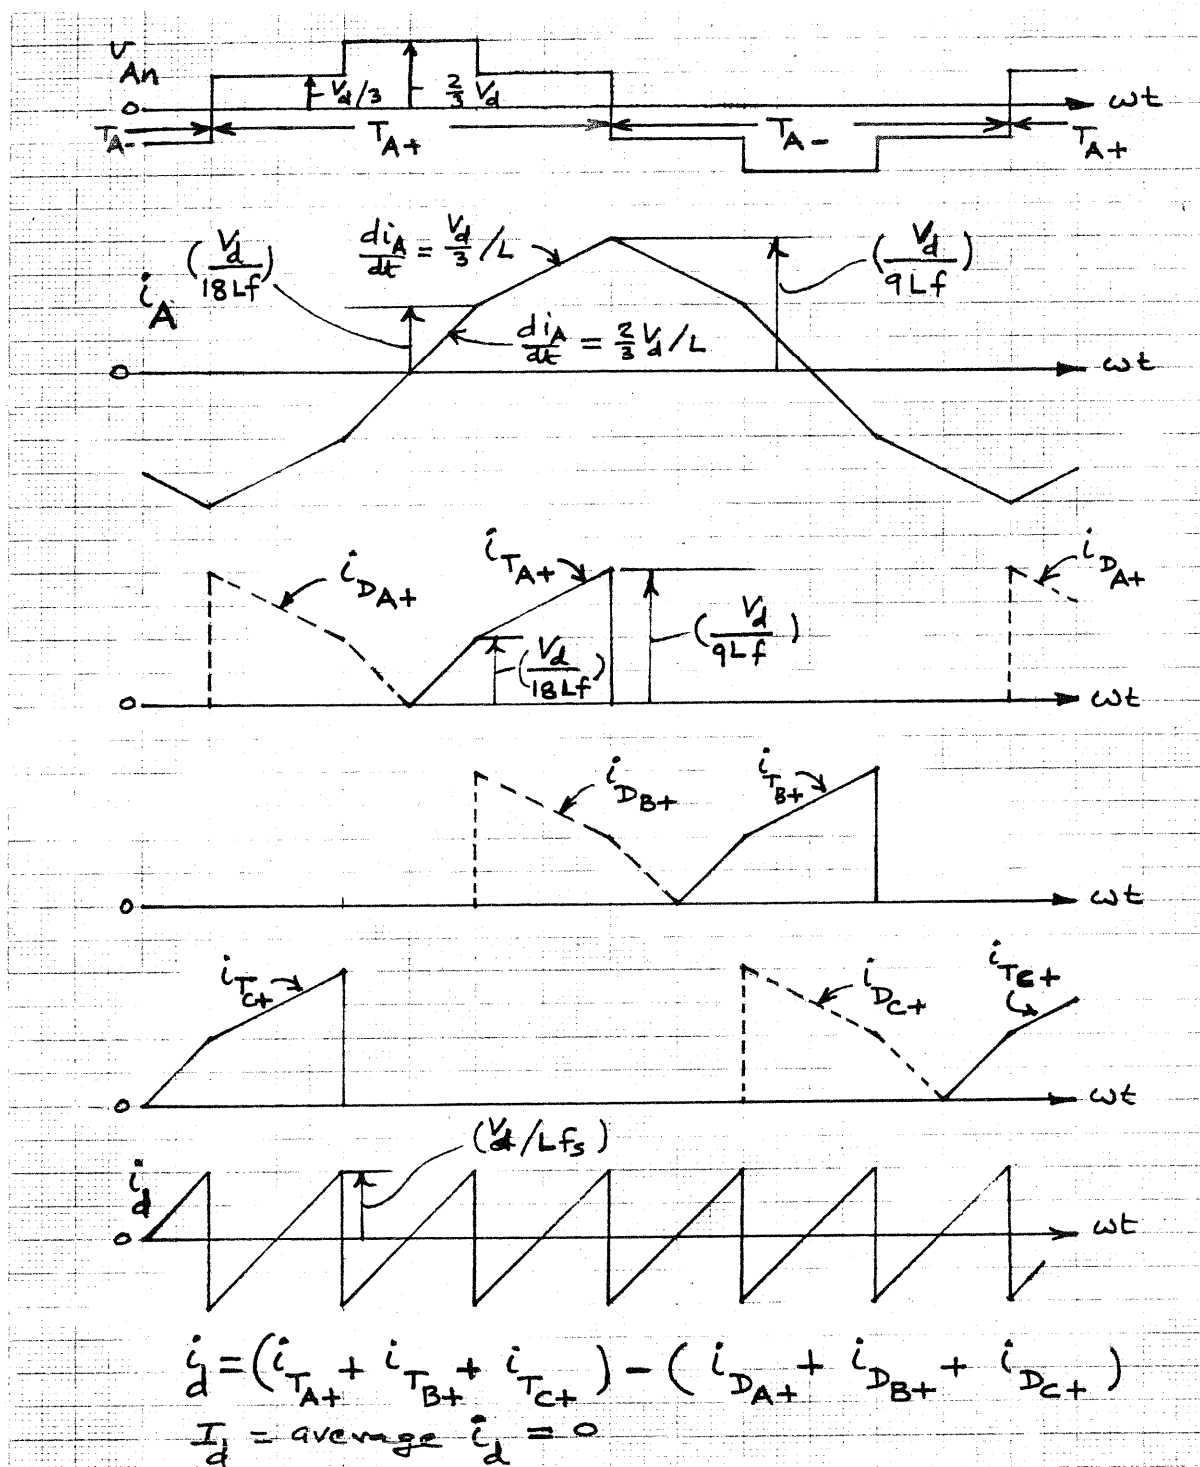 v_An
V_d/3
2/3 V_d
0
ωt
T_A-
T_A+
T_A-
T_A+
(V_d/18Lf)
di_A/dt = V_d/3 /L
(V_d/9Lf)
i_A
di_A/dt = 2/3 V_d/L
0
ωt
i_DA+
i_TA+
i_DA+
(V_d/9Lf)
(V_d/18Lf)
0
ωt
i_DB+
i_TB+
0
ωt
i_TC+
i_DC+
i_TC+
0
ωt
(V_d/Lf_s)
i_d
0
ωt
i_d = (i_TA+ + i_TB+ + i_TC+) - (i_DA+ + i_DB+ + i_DC+)
I_d = average i_d = 0